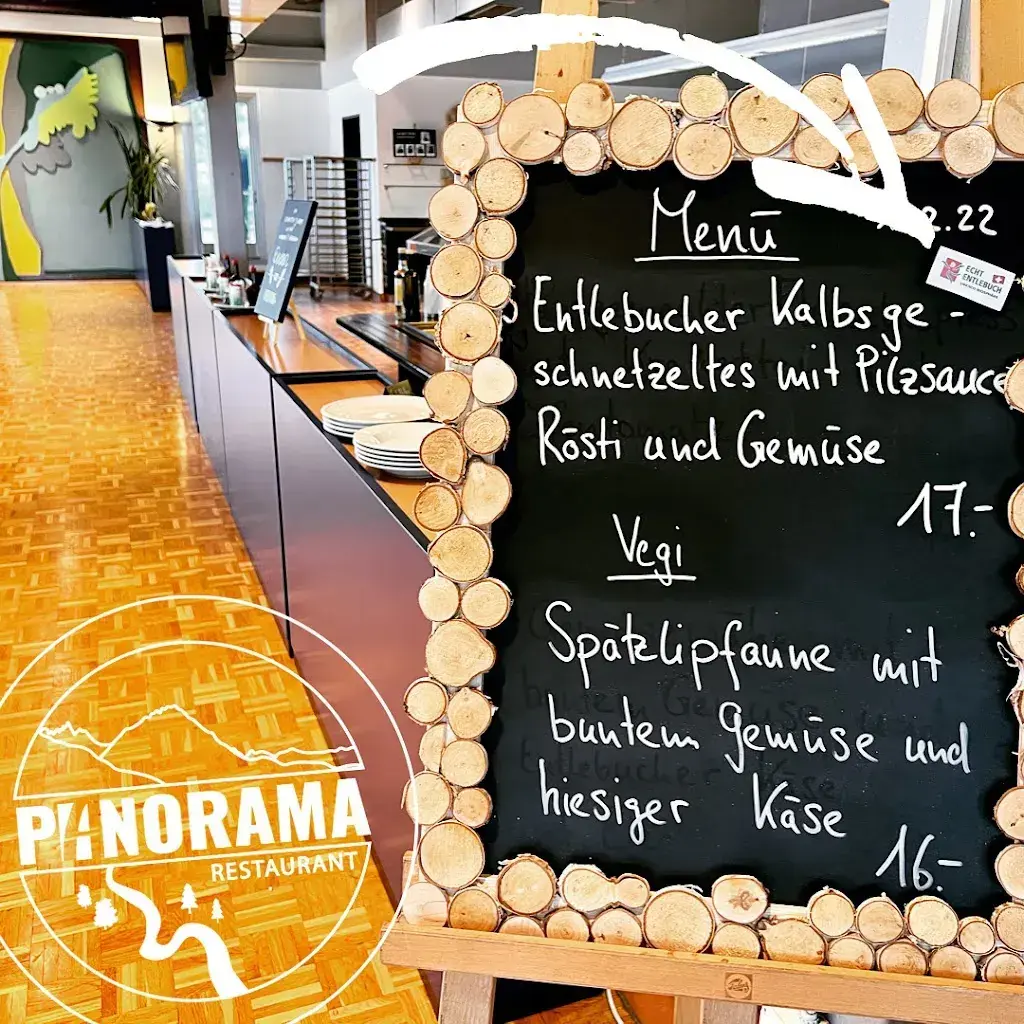 Menü
2.22
ECHT
ENTLEBUCH
Entlebucher Kalbsge-
schnetzeltes mit Pilzsauce
Rösti und Gemüse
17.-
Vegi
Spätzlipfanne mit
buntem Gemüse und
hiesiger Käse
16.-
PANORAMA
RESTAURANT